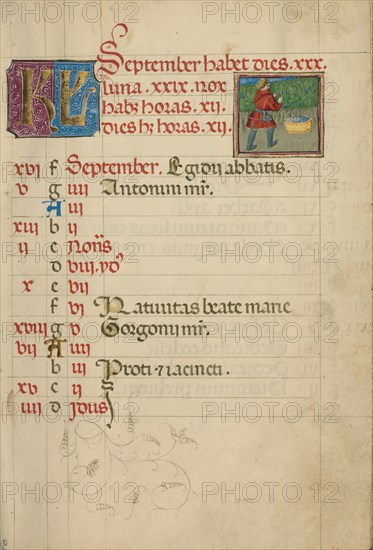 KL September habet dies. xxx.
luna. xxix. nox
habꝫ horas. xii.
dies hꝫ horas. xii.
xvi f September. Egidii abbatis.
v g iiii Antonini mr̃.
A iii
xiii b ii
ii c Noñs
d viii. yd'
x e vii
f vi Natiuitas beate marie
xviii g v Gorgonii mr̃.
vii A iiii
b iii Proti ⁊ iacincti.
xv c ii
iiii d Idus